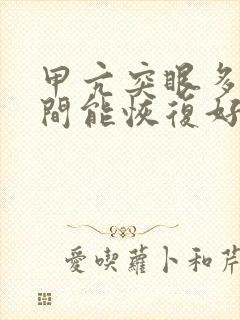 甲亢突眼多
間能恢復好
愛喫蘿卜和芹